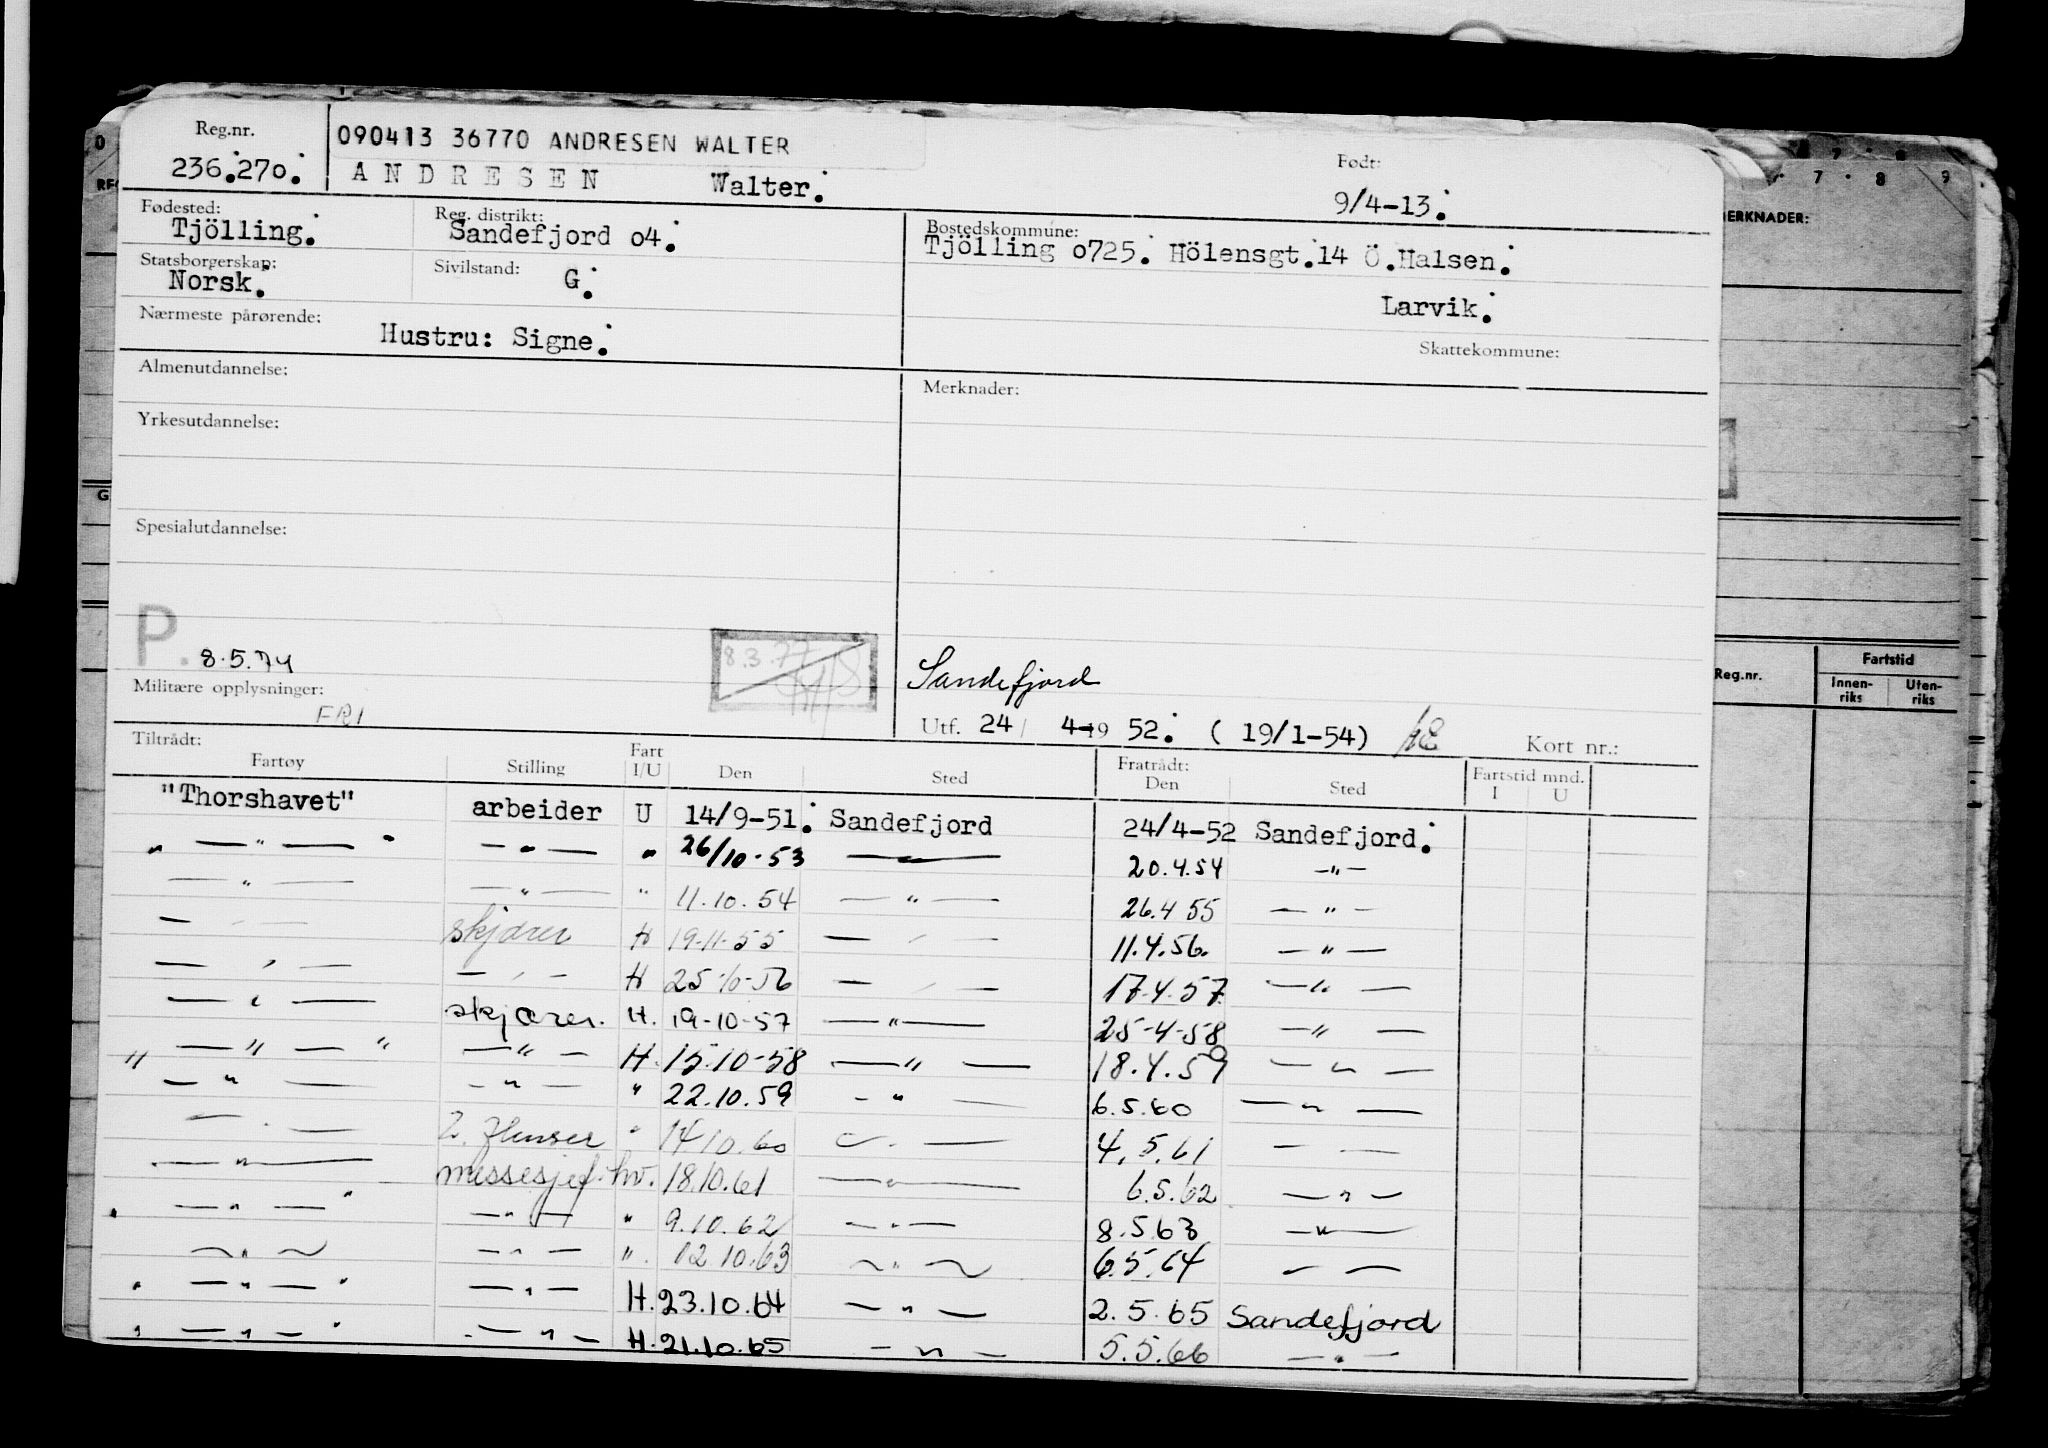 Reg.nr.
236.270.
090413 36770 ANDRESEN WALTER
ANDRESEN Walter.
Født:
9/4-13.
Fødested:
Tjölling.
Reg. distrikt:
Sandefjord o4.
Bostedskommune:
Tjölling o725. Hölensgt.14 Ö.Halsen.
Larvik.
Statsborgerskap:
Norsk.
Sivilstand:
G.
Nærmeste pårørende:
Hustru: Signe.
Skattekommune:
Almenutdannelse:
Merknader:
Yrkesutdannelse:
Spesialutdannelse:
P. 8.5.74
8.3.77
Militære opplysninger:
FRI
Sandefjord
Utf. 24/ 4-19 52. ( 19/1-54)
Kort nr.:
Tiltrådt:
Fartøy Stilling Fart I/U Den Sted Fratrådt: Den Sted Fartstid mnd. I U
"Thorshavet" arbeider U 14/9-51. Sandefjord 24/4-52 Sandefjord.
" — " — " — " — " 26/10-53 — " — 20.4.54 — " —
— " — — " — " 11.10.54 — " — 26.4 55 — " —
— — skjærer H 19-11-55 — " — 11.4.56. — " —
— " — — " — H 25-10-56 — " — 17.4.57. — " —
— " — skjærer. H. 19-10-57 — " — 25-4-58 — " —
" — " — " — " — H. 15.10-58 — " — 18.4.59 — " —
— " — — " — " 22.10.59 — " — 6.5.60 — " —
— " — 2. flenser " 14.10.60 — " — 4.5.61 — —
— " — messesjef. hv. 18.10.61 — " — 6.5.62 — " —
" — " — " — " — " 9.10.62 — " — 8.5.63 — " —
— " — — " — ". 12.10.63 — " — 6.5.64 — —
" — " — " — " — H. 23.10.64 — " — 2.5.65 Sandefjord
" — " — " — " — H. 21.10.65 — " — 5.5.66 — " —
ERKNADER:
Reg.nr.
Fartstid
Innen-
riks
Uten-
riks
7 8 9